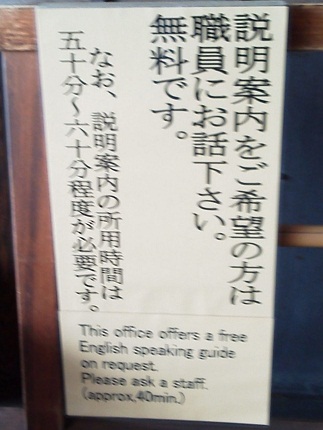 説明案内をご希望の方は
職員にお話下さい。
無料です。
なお、説明案内の所用時間は
五十分〜六十分程度が必要です。
This office offers a free
English speaking guide
on request.
Please ask a staff.
(approx,40min.)